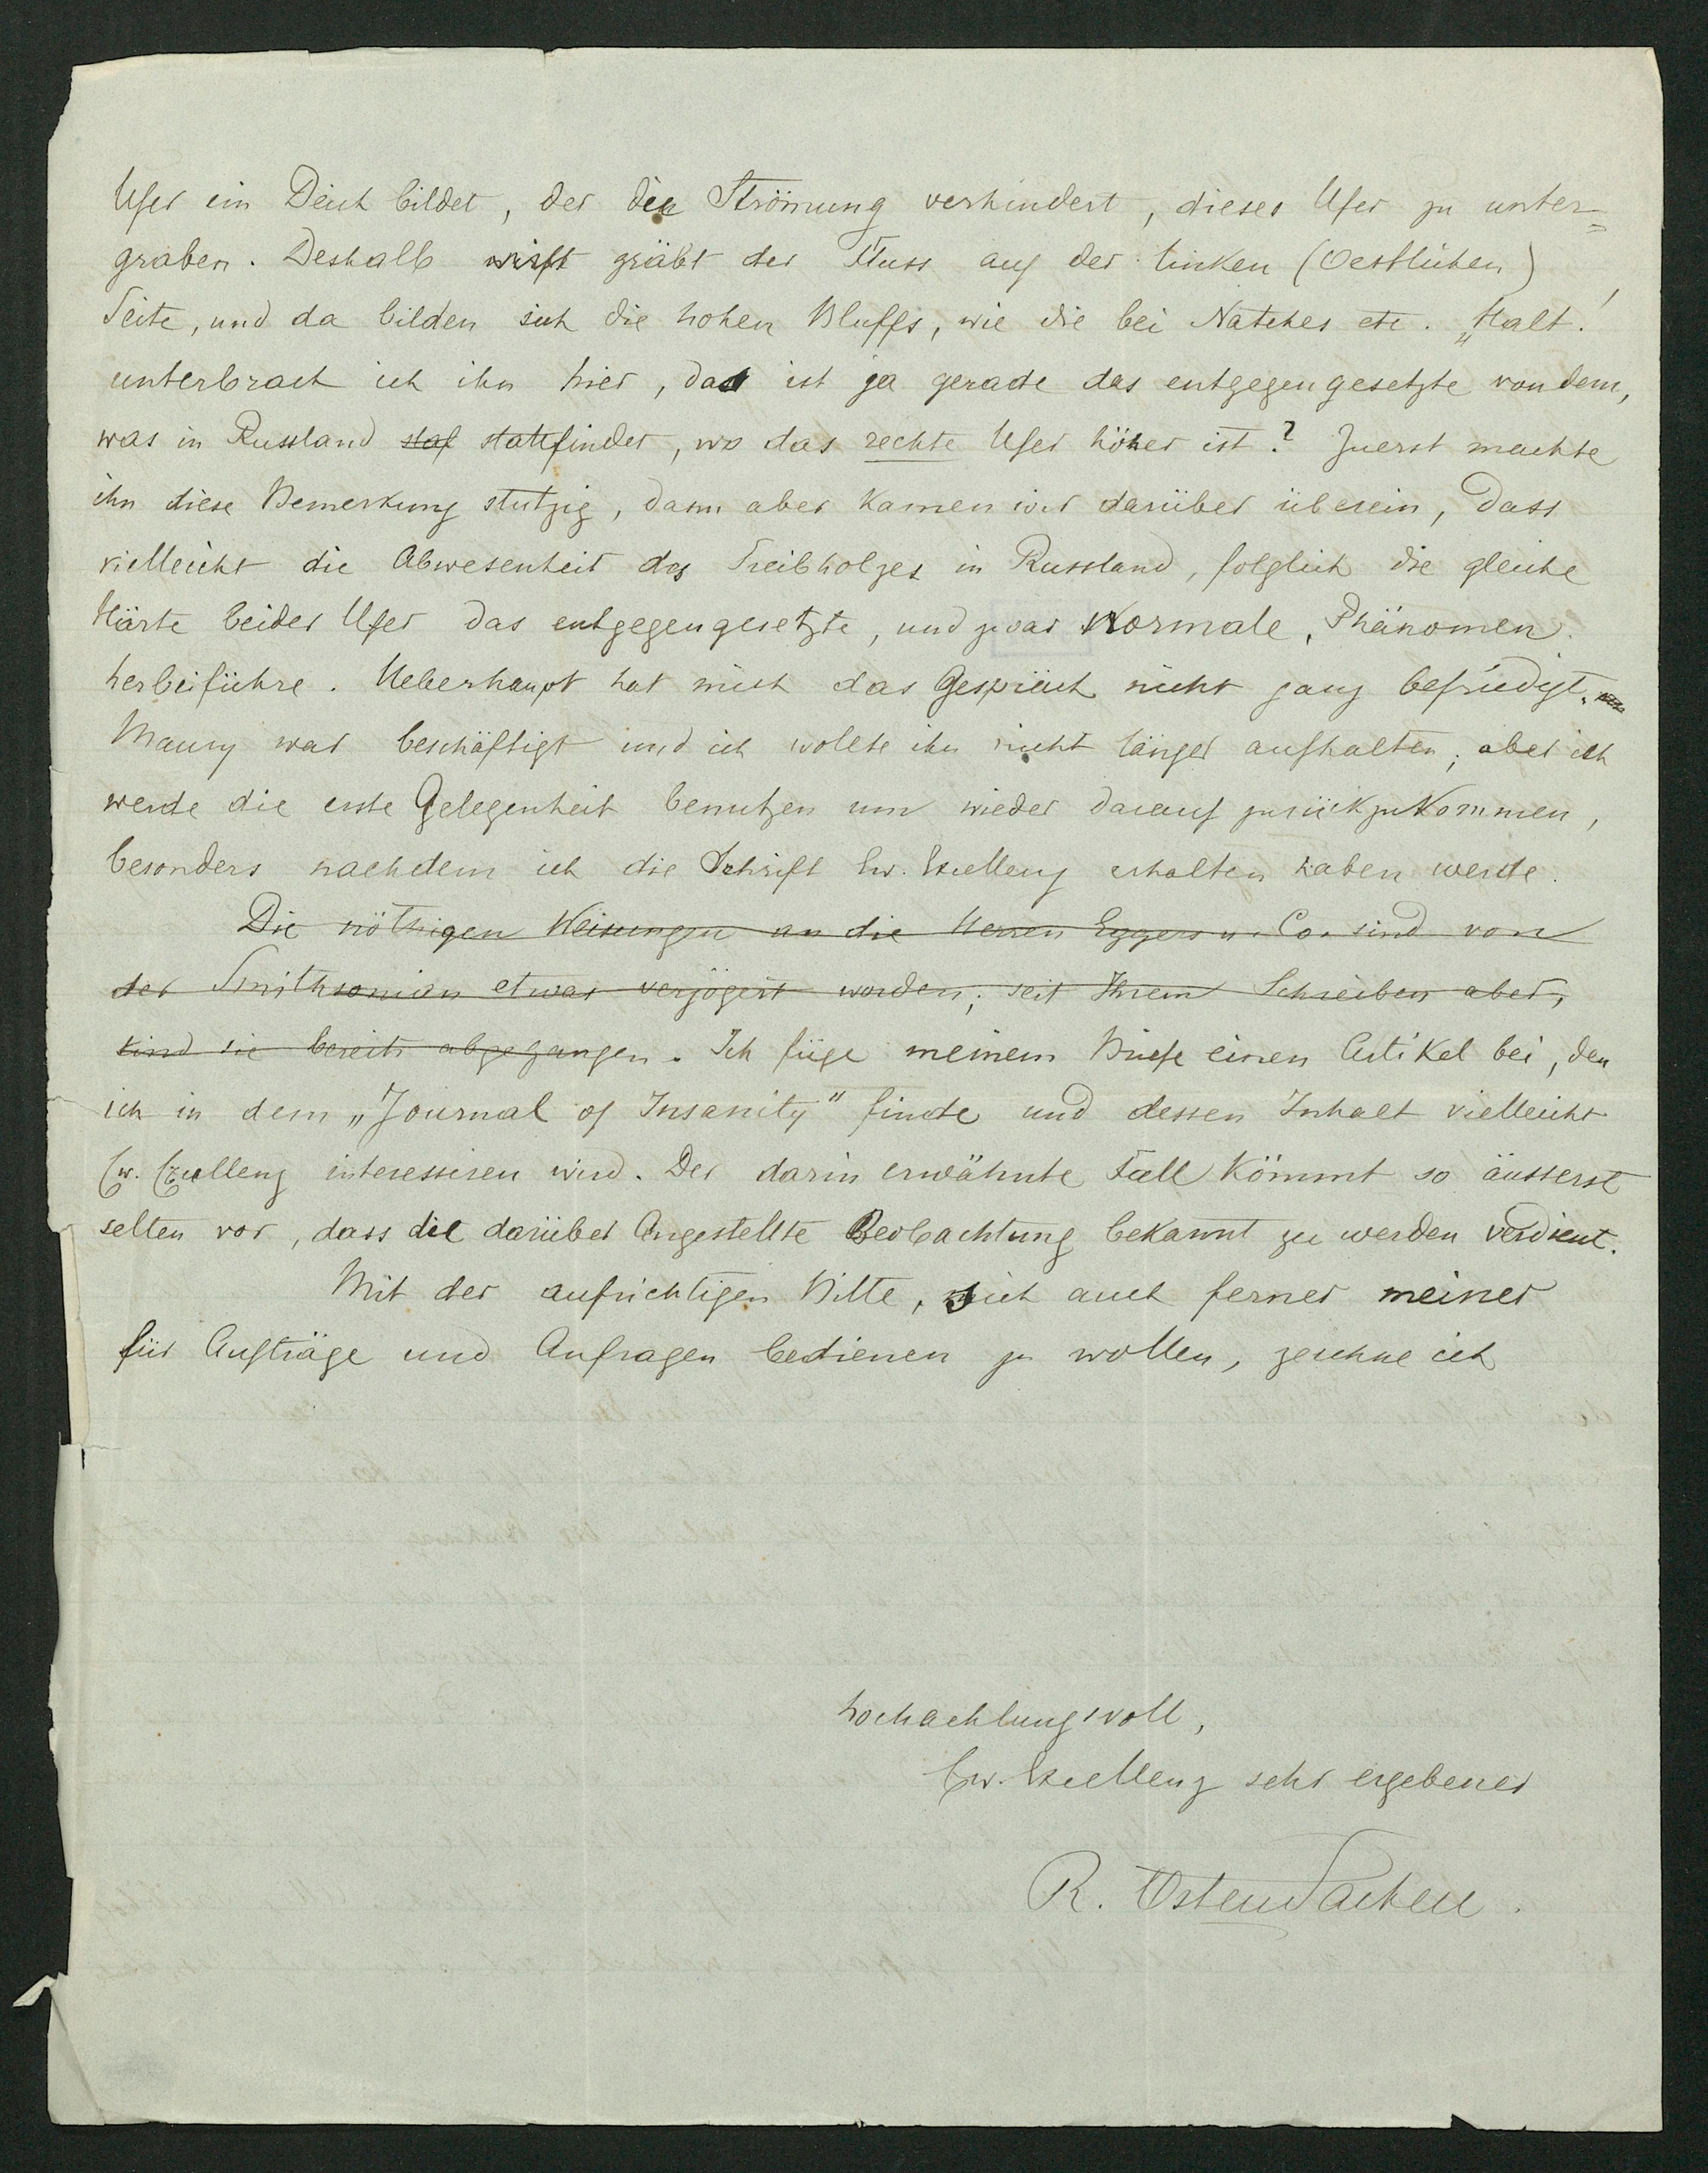 Ufer ein Deich bildet, der die Strömung verhindert, dieses Ufer zu unter=
graben. Deshalb wirft gräbt der Fluss auf der linken (Oestlichen)
Seite, und da bilden sich die hohen Bluffs, wie die bei Natches etc. „Halt!
unterbrach ich ihn hier, das ist ja gerade das entgegengesetzte von dem,
was in Russland staf stattfindet, wo das rechte Ufer höher ist? Zuerst machte
ihn diese Bemerkung stutzig, dann aber kamen wir darüber überein, dass
vielleicht die Abwesenheit des Treibholzes in Russland, folglich die gleiche
Härte beider Ufer das entgegengesetzte, und zwar Normale, Phänomen
herbeiführe. Ueberhaupt hat mich das Gespräch nicht ganz befriedigt.
Maury war beschäftigt und ich wollte ihn nicht länger aufhalten; aber ich
werde die erste Gelegenheit benutzen um wieder darauf zurückzukommen,
besonders nachdem ich die Schrift Ew. Excellenz erhalten haben werde.
Die nöthigen Weisungen an die Herren Eggers u. Co. sind von
der Smithsonian etwas verzögert worden; seit Ihrem Schreiben aber,
sind sie bereits abgegangen. Ich füge meinem Briefe einen Artikel bei, den
ich in dem „Journal of Insanity" finde und dessen Inhalt vielleicht
Ew. Excellenz interessiren wird. Der darin erwähnte Fall kömmt so äusserst
selten vor, dass die darüber Angestellte Beobachtung bekannt zu werden verdient.
Mit der aufrichtigen Bitte, sich auch ferner meiner
für Aufträge und Anfragen bedienen zu wollen, zeichne ich
hochachtungsvoll,
Ew. Excellenz sehr ergebener
R. OstenSacken.